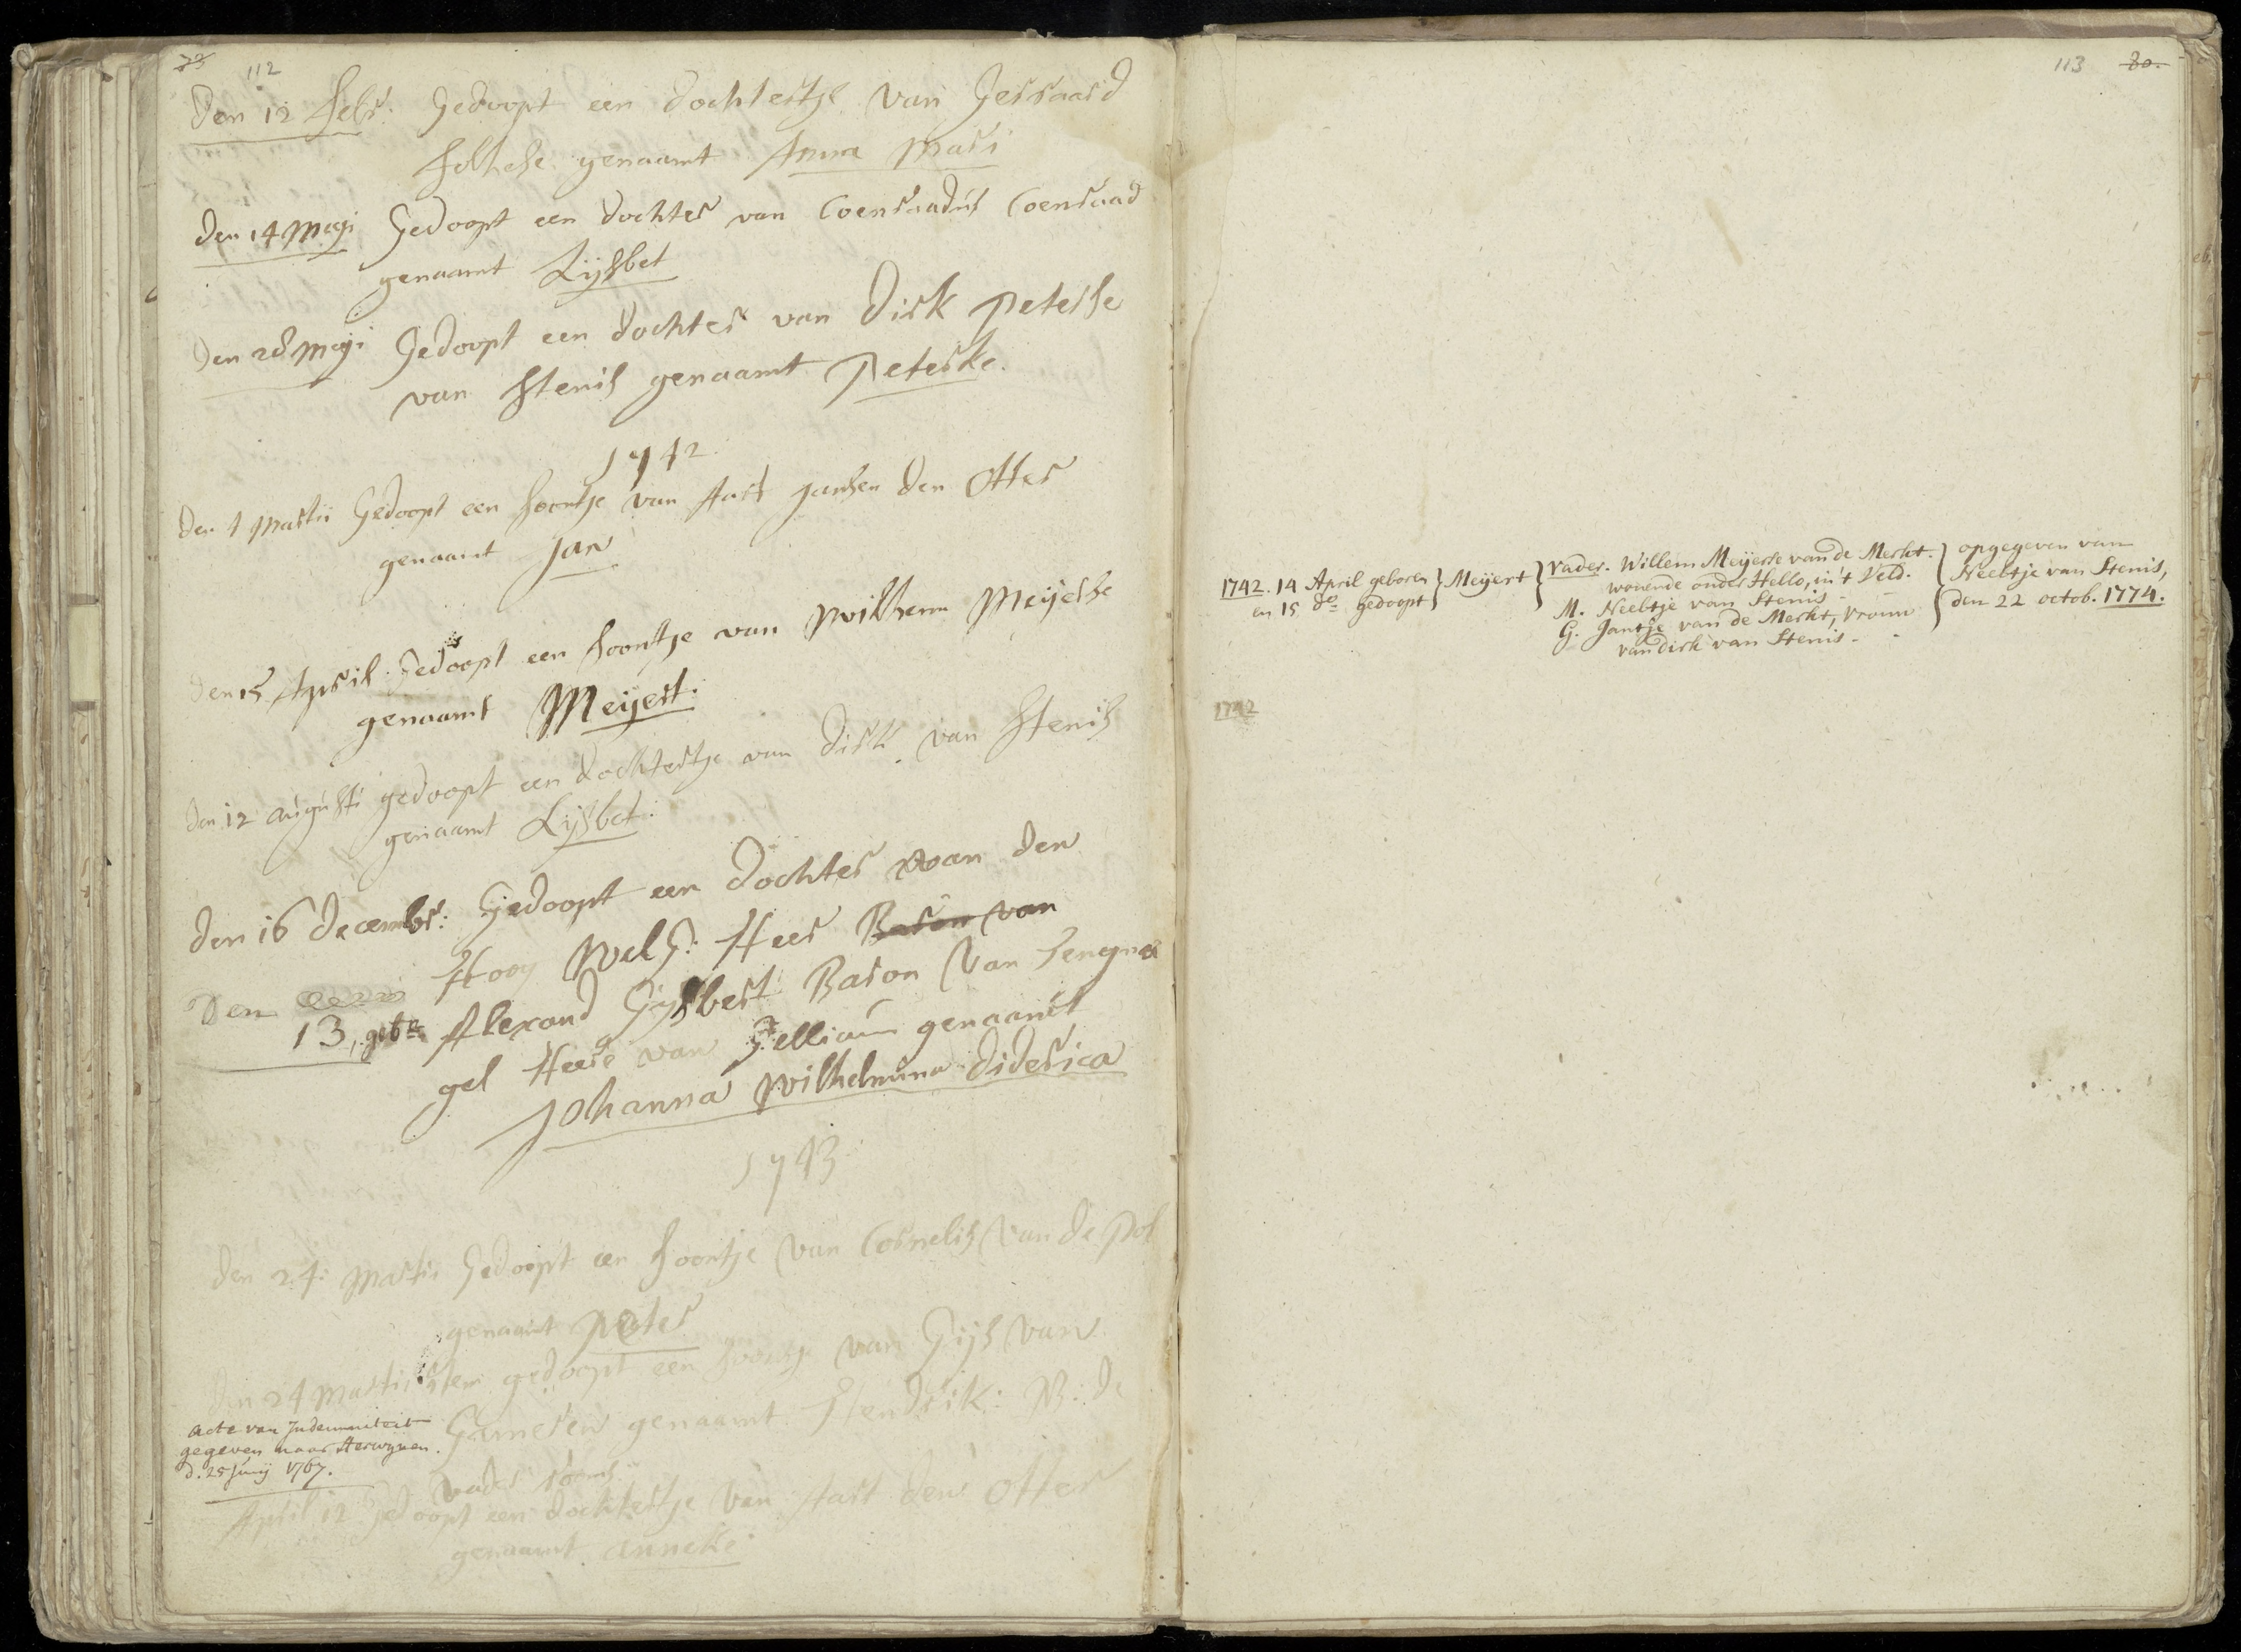 112
Den 12 Febr: Gedoopt een dochtertje van Gerraard
genaamt Anna Mari
Den 14 Maji Gedoopt een dochter van Coenraadus Coenraad
genaamt Lijsbet
Den 28 Maji Gedoopt een dochter van Dirk Peterse
van Stenis genaamt Peterke.
1742
Den 1 Martii Gedoopt een soontje van Aart Jansen den Otter
genaamt Jan
Den 15 April Gedoopt een soontje van Wilhem Meijerse
genaamt Meijert.
Den 12 augusti gedoopt een dochtertje van Dirk van Stenis
genaamt Lijsbet.
Den 16 decembr: Gedoopt een dochter van den
Hoog Welg: Heer Baron van
Den
13, gebn Alexand Gijsbert Baron van Lengna
gel Heere van Zellium genaamt
Johanna Wilhelmina Diderica
1743
Den 24: Martii Gedoopt een soontje van Cornelis van de Pol
genaamt Peter
Den 24 Martii item gedoopt een soontje van Gijs van
Gameren genaamt Hendrik: N: de
vader rooms
acte van Indemniteit
gegeven naar Herwynen.
d. 25 Junij 1767.
April 12 Gedoopt een dochtertje van Aart den Otter
genaamt anneke
113 80.
1742. 14 April geboren
en 15 do gedoopt
Meijert
Vader. Willem Meijerse van de Merkt.
wonende onder Hello, in 't Veld.
M. Neeltje van Stenis
G. Jantje van de Merkt, vrouw
van dirk van Stenis.
opgegeven van
Neeltje van Stenis,
den 22 octob. 1774.
1742